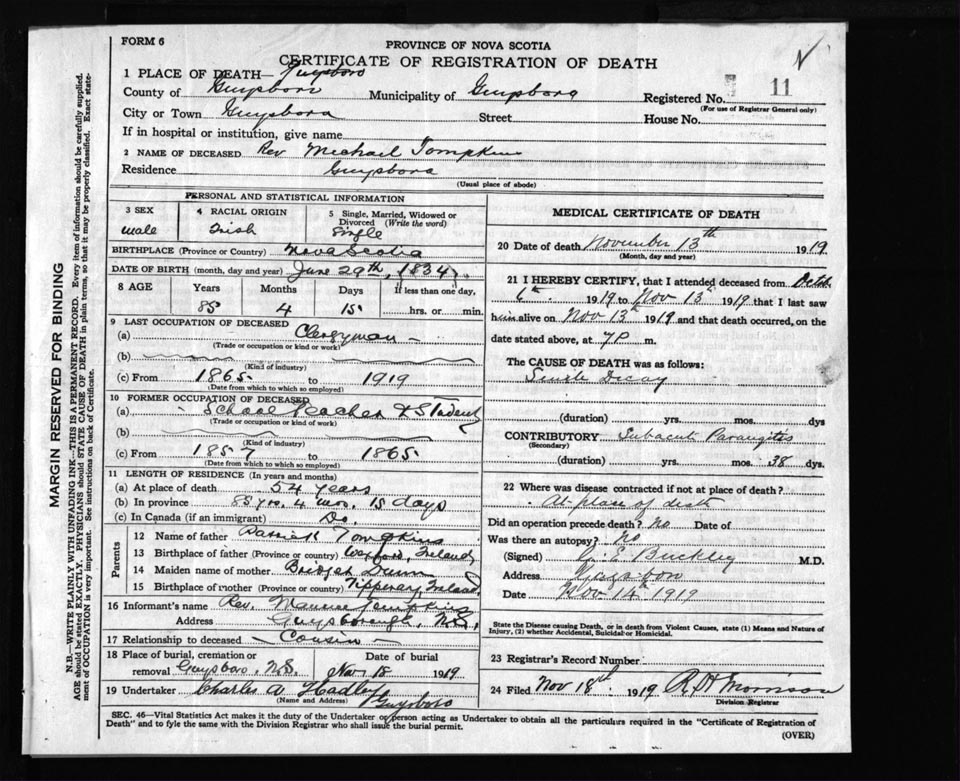 FORM 6
PROVINCE OF NOVA SCOTIA
CERTIFICATE OF REGISTRATION OF DEATH
1 PLACE OF DEATH— Guysboro
County of Guysboro Municipality of Guysboro Registered No. 11
(For use of Registrar General only)
City or Town Guysboro Street House No.
If in hospital or institution, give name
2 NAME OF DECEASED Rev Michael Tompkins
Residence Guysboro
(Usual place of abode)
PERSONAL AND STATISTICAL INFORMATION
3 SEX 4 RACIAL ORIGIN 5 Single, Married, Widowed or Divorced (Write the word)
male Irish Single
BIRTHPLACE (Province or Country) Nova Scotia
DATE OF BIRTH (month, day and year) June 29th, 1834
8 AGE Years Months Days If less than one day,
85 4 15 hrs. or min.
9 LAST OCCUPATION OF DECEASED
(a) Clergyman
(Trade or occupation or kind of work)
(b)
(Kind of industry)
(c) From 1865 to 1919
(Date from which to which so employed)
10 FORMER OCCUPATION OF DECEASED
(a) School Teacher & Student
(Trade or occupation or kind of work)
(b)
(Kind of industry)
(c) From 1857 to 1865
(Date from which to which so employed)
11 LENGTH OF RESIDENCE (In years and months)
(a) At place of death 54 years
(b) In province 85 yrs. 4 mon. 15 days
(c) In Canada (if an immigrant) Do.
Parents
12 Name of father Patrick Tompkins
13 Birthplace of father (Province or country) Wexford, Ireland
14 Maiden name of mother Bridget Dunn
15 Birthplace of mother (Province or country) Tipperary, Ireland
16 Informant's name Rev. Maurice Tompkins
Address Guysborough, N.S.
17 Relationship to deceased Cousin
18 Place of burial, cremation or removal Guysboro, N.S. Date of burial Nov 18 1919
19 Undertaker Charles A Hadley
(Name and Address) Guysboro
MEDICAL CERTIFICATE OF DEATH
20 Date of death November 13th 1919
(Month, day and year)
21 I HEREBY CERTIFY, that I attended deceased from
6th 1919 to Nov 13th 1919 that I last saw
him alive on Nov 13th 1919 and that death occurred, on the
date stated above, at 7 P m.
The CAUSE OF DEATH was as follows:
Senile Decay
(duration) yrs. mos. dys
CONTRIBUTORY Subacute
(Secondary)
(duration) yrs. mos. 38 dys.
22 Where was disease contracted if not at place of death?
At place of death
Did an operation precede death? No Date of
Was there an autopsy? no
(Signed) Buckley M.D.
Address Guysboro
Date Nov 14th 1919
State the Disease causing Death, or in death from Violent Causes, state (1) Means and Nature of
Injury, (2) whether Accidental, Suicidal or Homicidal.
23 Registrar's Record Number
24 Filed Nov 18th 1919 Morrison
Division Registrar
SEC. 46—Vital Statistics Act makes it the duty of the Undertaker or person acting as Undertaker to obtain all the particulars required in the "Certificate of Registration of
Death" and to fyle the same with the Division Registrar who shall issue the burial permit.
(OVER)
MARGIN RESERVED FOR BINDING
N.B.—WRITE PLAINLY WITH UNFADING INK—THIS IS A PERMANENT RECORD. Every item of information should be carefully supplied.
AGE should be stated EXACTLY. PHYSICIANS should STATE CAUSE OF DEATH in plain terms, so that it may be properly classified. Exact state-
ment of OCCUPATION is very important. See instructions on back of Certificate.